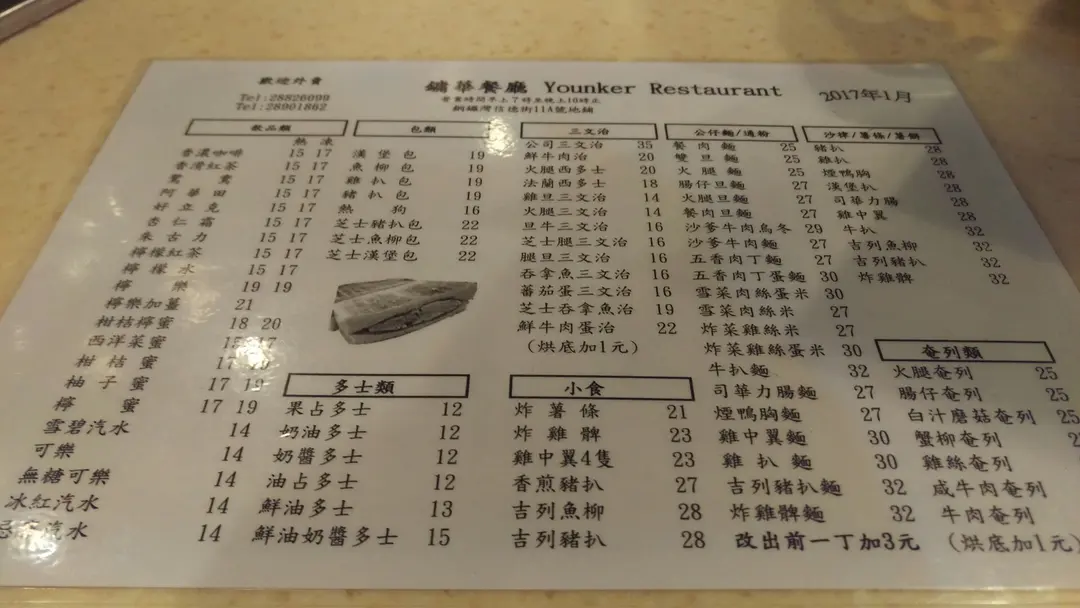 歡迎外賣
Tel:28826099
Tel:28901862
鏽華餐廳 Younker Restaurant
營業時間早上7時至晚上10時止
銅鑼灣信德街11A號地鋪
2017年1月
飲品類
熱 凍
香濃咖啡 15 17
香滑紅茶 15 17
鴛鴦 15 17
阿華田 15 17
好立克 15 17
杏仁霜 15 17
朱古力 15 17
檸檬紅茶 15 17
檸檬水 15 17
檸樂 19 19
檸樂加薑 21
柑桔檸蜜 18 20
西洋菜蜜 17
柑桔蜜 17 19
柚子蜜 17 19
檸蜜 17 19
雪碧汽水 14
可樂 14
無糖可樂 14
冰紅汽水 14
汽水 14
包類
漢堡包 19
魚柳包 19
雞扒包 19
豬扒包 19
熱狗 16
芝士豬扒包 22
芝士魚柳包 22
芝士漢堡包 22
多士類
果占多士 12
奶油多士 12
奶醬多士 12
油占多士 12
鮮油多士 13
鮮油奶醬多士 15
三文治
公司三文治 35
鮮牛肉治 20
火腿西多士 20
法蘭西多士 18
雞旦三文治 14
火腿三文治 14
旦牛三文治 16
芝士腿三文治 16
腿旦三文治 16
吞拿魚三文治 16
蕃茄蛋三文治 16
芝士吞拿魚治 19
鮮牛肉蛋治 22
(烘底加1元)
小食
炸薯條 21
炸雞髀 23
雞中翼4隻 23
香煎豬扒 27
吉列魚柳 28
吉列豬扒 28
公仔麵/通粉
餐肉麵 25
雙旦麵 25
火腿麵 25
腸仔旦麵 27
火腿旦麵 27
餐肉旦麵 27
沙爹牛肉烏冬 29
沙爹牛肉麵 27
五香肉丁麵 27
五香肉丁蛋麵 30
雪菜肉絲蛋米 30
雪菜肉絲米 27
炸菜雞絲米 27
炸菜雞絲蛋米 30
牛扒麵 32
司華力腸麵 27
煙鴨胸麵 27
雞中翼麵 30
雞扒麵 30
吉列豬扒麵 32
炸雞髀麵 32
改出前一丁加3元
沙律/薯條/薯餅
豬扒 28
雞扒 28
煙鴨胸 28
漢堡扒 28
司華力腸 28
雞中翼 28
牛扒 32
吉列魚柳 32
吉列豬扒 32
炸雞髀 32
奄列類
火腿奄列 25
腸仔奄列 25
白汁磨菇奄列 25
蟹柳奄列
雞絲奄列
咸牛肉奄列
牛肉奄列
(烘底加1元)